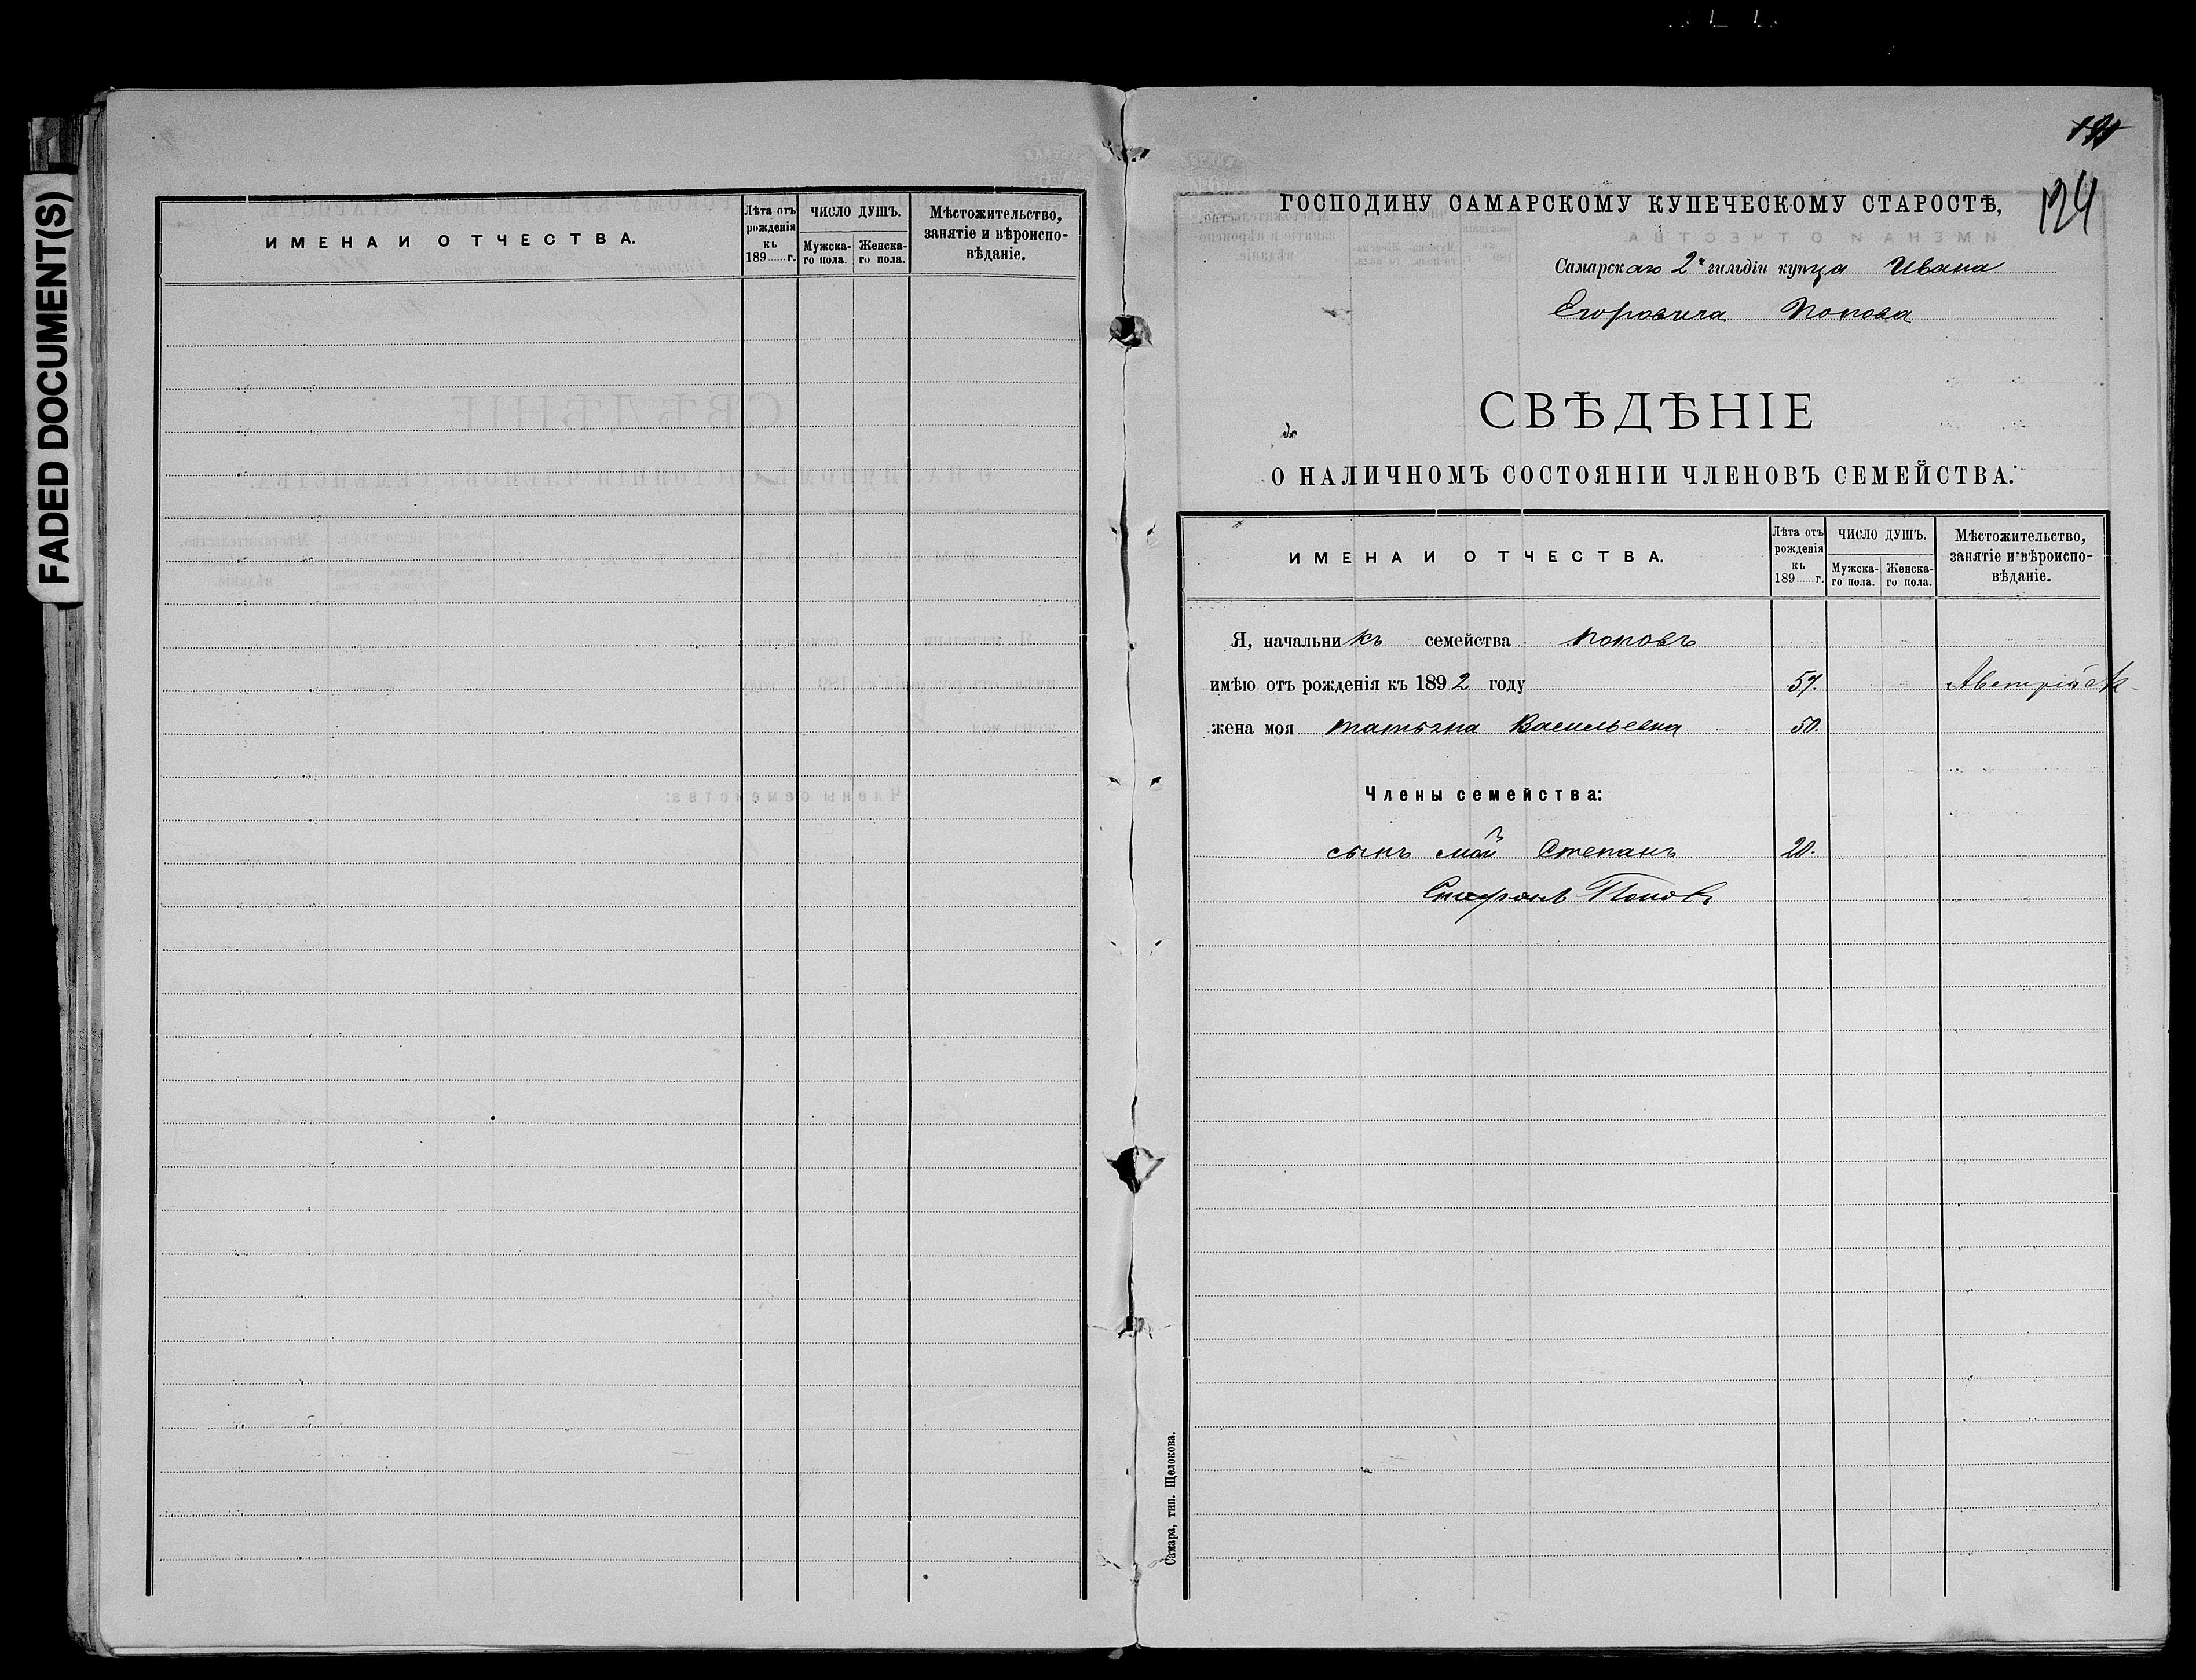 FADED DOCUMENT(S)
ИМЕНА И ОТЧЕСТВА.
Лѣта отъ рожденія къ 189 г.
ЧИСЛО ДУШЪ.
Мужска-го пола.
Женска-го пола.
Мѣстожительство, занятіе и вѣроиспо-вѣданіе.
124
ГОСПОДИНУ САМАРСКОМУ КУПЕЧЕСКОМУ СТАРОСТѢ,
Самарскаго 2й гильдіи купца Ивана
Егоровича Попова
СВѢДѢНІЕ
О НАЛИЧНОМЪ СОСТОЯНІИ ЧЛЕНОВЪ СЕМЕЙСТВА.
ИМЕНА И ОТЧЕСТВА.
Лѣта отъ рожденія къ 189 г.
ЧИСЛО ДУШЪ.
Мужска-го пола.
Женска-го пола.
Мѣстожительство, занятіе и вѣроиспо-вѣданіе.
Я, начальникъ семейства Поповъ
имѣю отъ рожденія къ 1892 году 57.
жена моя Татьяна Васильевна 50.
Члены семейства:
сынъ мой Степанъ 20.
Поповъ
Самара, тип. Щелокова.